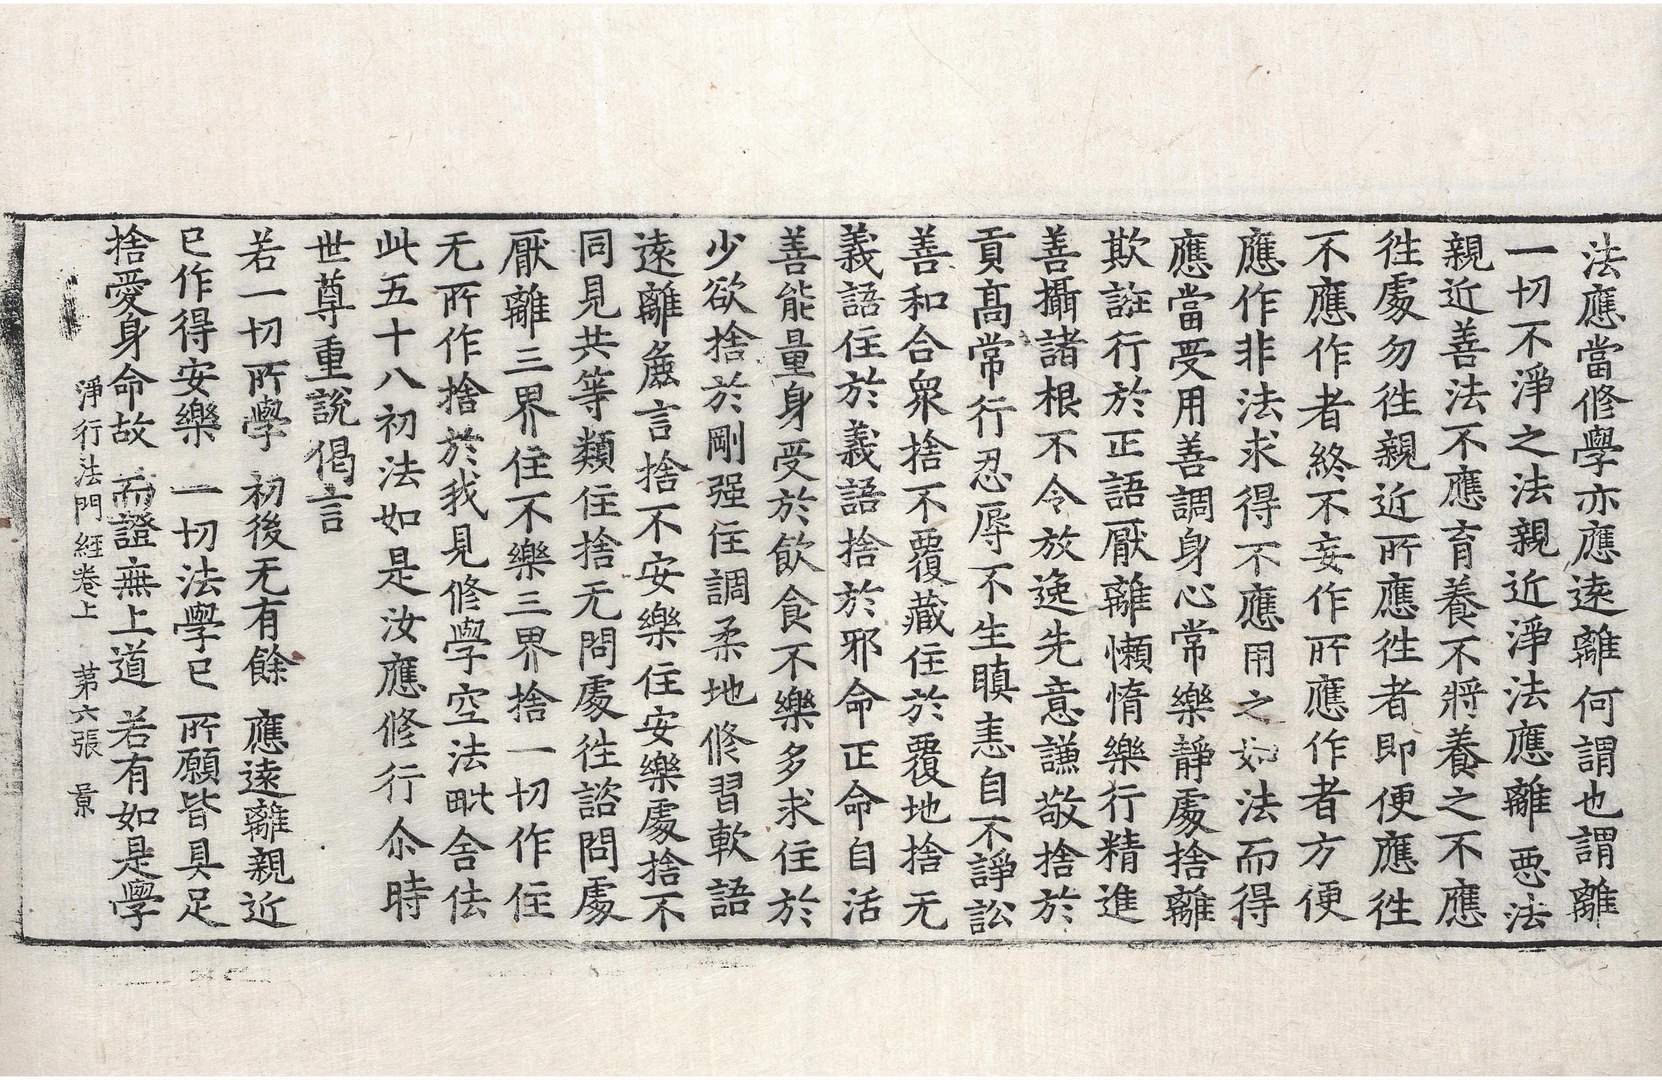 法應當修學亦應遠離何謂也謂離
一切不淨之法親近淨法應離惡法
親近善法不應育養不將養之不應
徃處勿徃親近所應徃者即便應徃
不應作者終不妄作所應作者方便
應作非法求得不應用之如法而得
應當受用善調身心常樂靜處捨離
欺誑行於正語厭離懶惰樂行精進
善攝諸根不令放逸先意謙敬捨於
貢高常行忍辱不生瞋恚自不諍訟
善和合衆捨不覆藏住於覆地捨无
義語住於義語捨於邪命正命自活
善能量身受於飲食不樂多求住於
少欲捨於剛强住調柔地修習軟語
遠離麁言捨不安樂住安樂處捨不
同見共等類住捨无問處徃諮問處
厭離三界住不樂三界捨一切作住
无所作捨於我見修學空法毗舍佉
此五十八初法如是汝應修行尒時
世尊重說偈言
若一切所學 初後无有餘 應遠離親近
已作得安樂 一切法學已 所願皆具足
捨愛身命故 而證无上道 若有如是學
淨行法門經卷上 苐六張 景